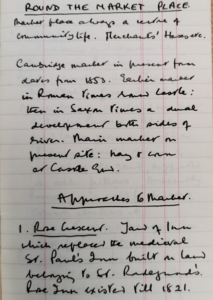 ROUND THE MARKET PLACE
Market place always a centre of
community life. Merchants' Houses etc.
Cambridge market in present form
dates from 1853. Earlier market
in Roman times near Castle:
then in Saxon times a dual
development both sides of
river. Main market on
present site: hay & corn
at Castle End.
Approaches to Market.
1. Rose Crescent. Yard of Inn
which replaced the medieval
St. Paul's Inn built on land
belonging to St. Radegunds.
Rose Inn existed till 1821.